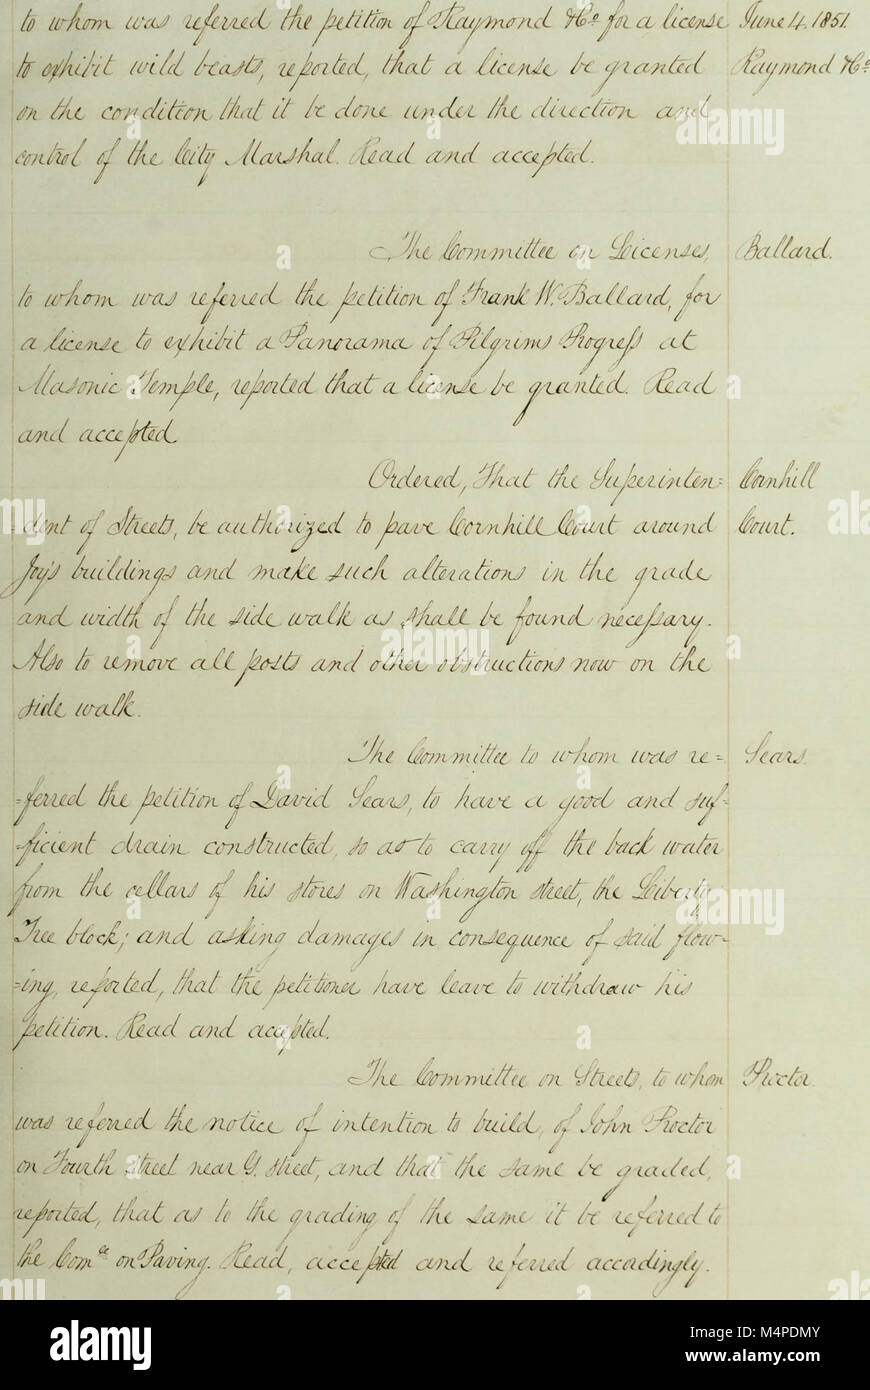 to whom was referred the petition of Raymond & Co. for a license
June 4. 1851.
to exhibit wild beasts, reported, that a license be granted
Raymond & Co.
on the condition that it be done under the direction and
control of the City Marshal. Read and accepted.
The Committee on Licenses,
Ballard.
to whom was referred the petition of Frank W. Ballard, for
a license to exhibit a Panorama of Pilgrims Progress at
Masonic Temple, reported that a license be granted. Read
and accepted.
Ordered, That the Superinten=
Cornhill
=dent of Streets, be authorized to pave Cornhill Court around
Court.
Joy's buildings and make such alterations in the grade
and width of the side walk as shall be found necessary.
Also to remove all posts and other obstructions now on the
side walk.
The Committee to whom was re=
Sears.
=ferred the petition of David Sears, to have a good and suf=
=ficient drain constructed, so as to carry off the back water
from the cellars of his stores on Washington street, the Liberty
Tree block; and asking damages in consequence of said flow=
=ing, reported, that the petitioner have leave to withdraw his
petition. Read and accepted.
The Committee on Streets, to whom
Proctor.
was referred the notice of intention to build, of John Proctor
on Fourth street near G. street, and that the same be graded,
reported, that as to the grading of the same it be referred to
the Comee on Paving. Read, accepted and referred accordingly.
alamy
Image ID: M4PDMY
www.alamy.com